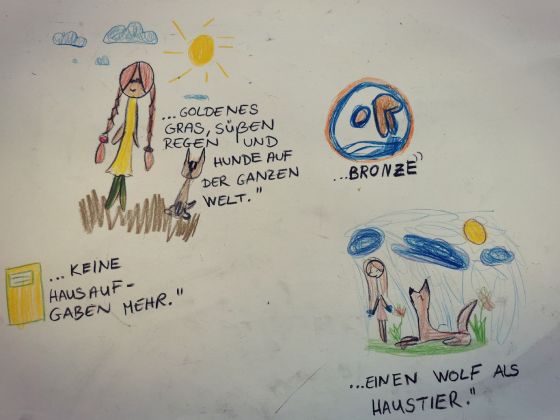 ...GOLDENES
GRAS, SÜßEN
REGEN UND
HUNDE AUF
DER GANZEN
WELT."
...BRONZE"
...KEINE
HAUSAUF-
GABEN MEHR."
...EINEN WOLF ALS
HAUSTIER."